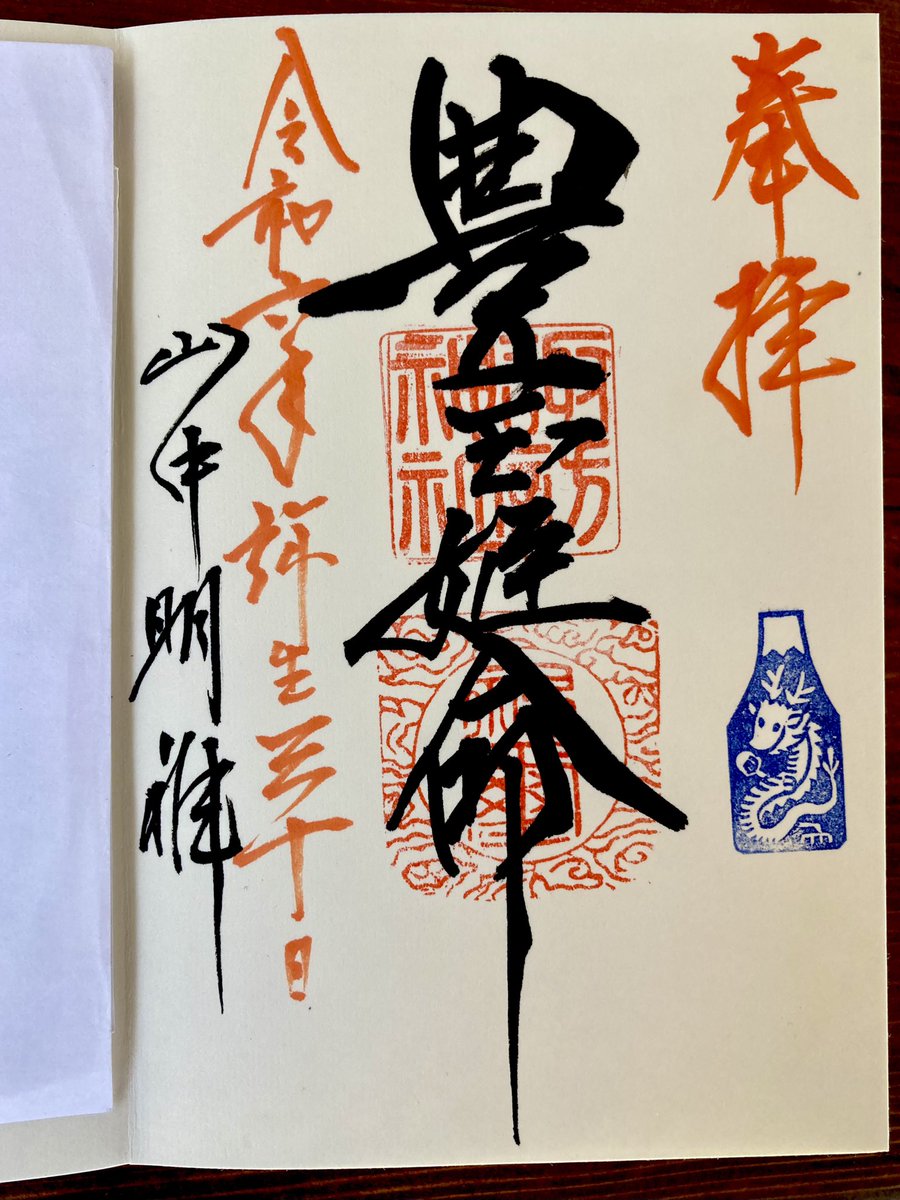 奉拝
豊玉姫命
令和六年弥生三十日
山中明神